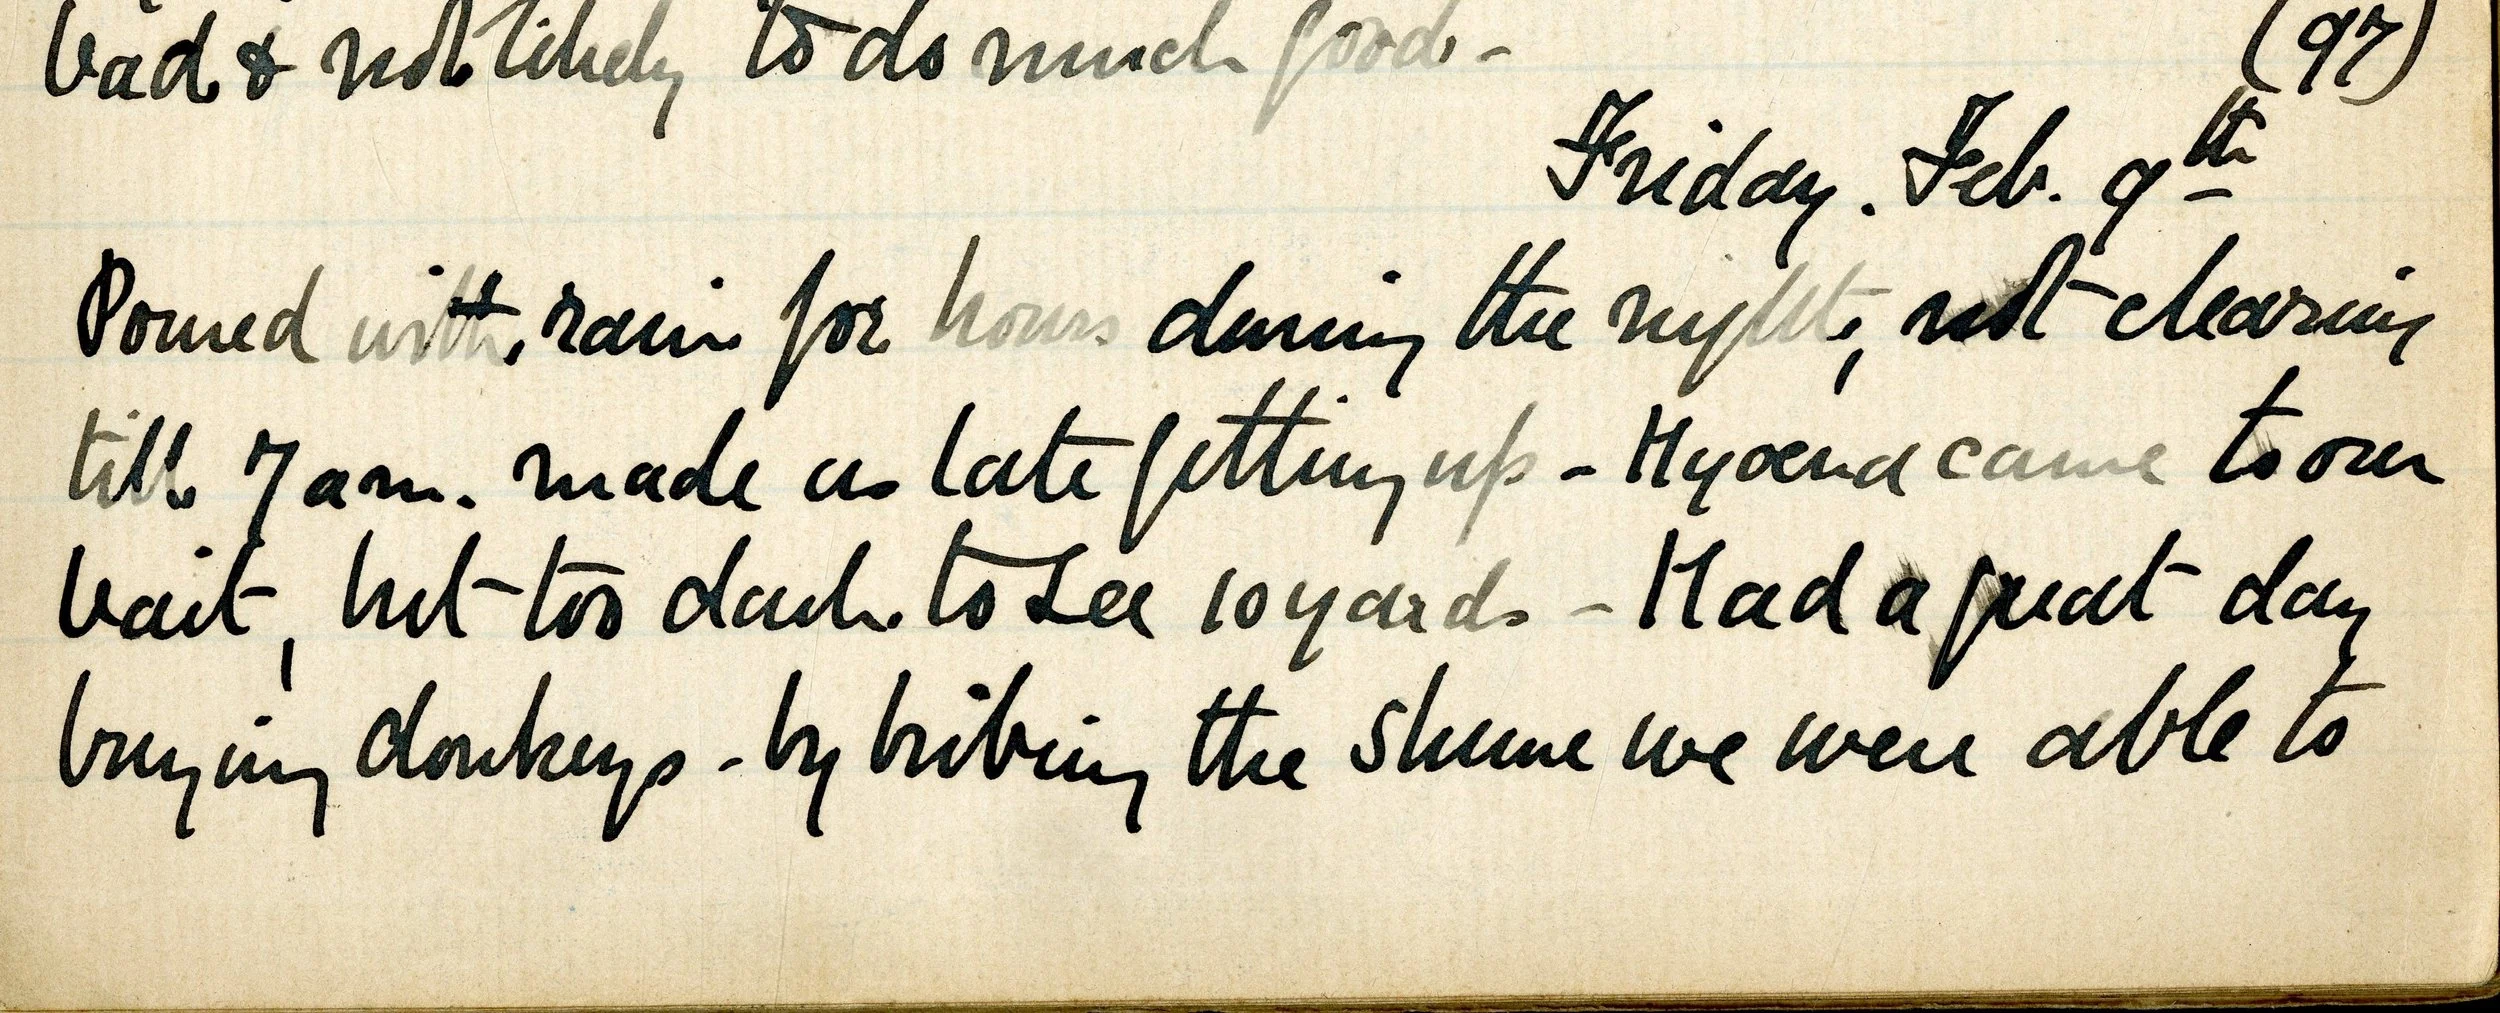 bad & not likely to do much good - (97)
Friday. Feb. 9th
Poured with rain for hours during the night, not clearing
till 7 am. made us late getting up - Hyoena came to our
bait, but too dark to see 10 yards - Had a great day
buying donkeys - by bribing the Shume we were able to